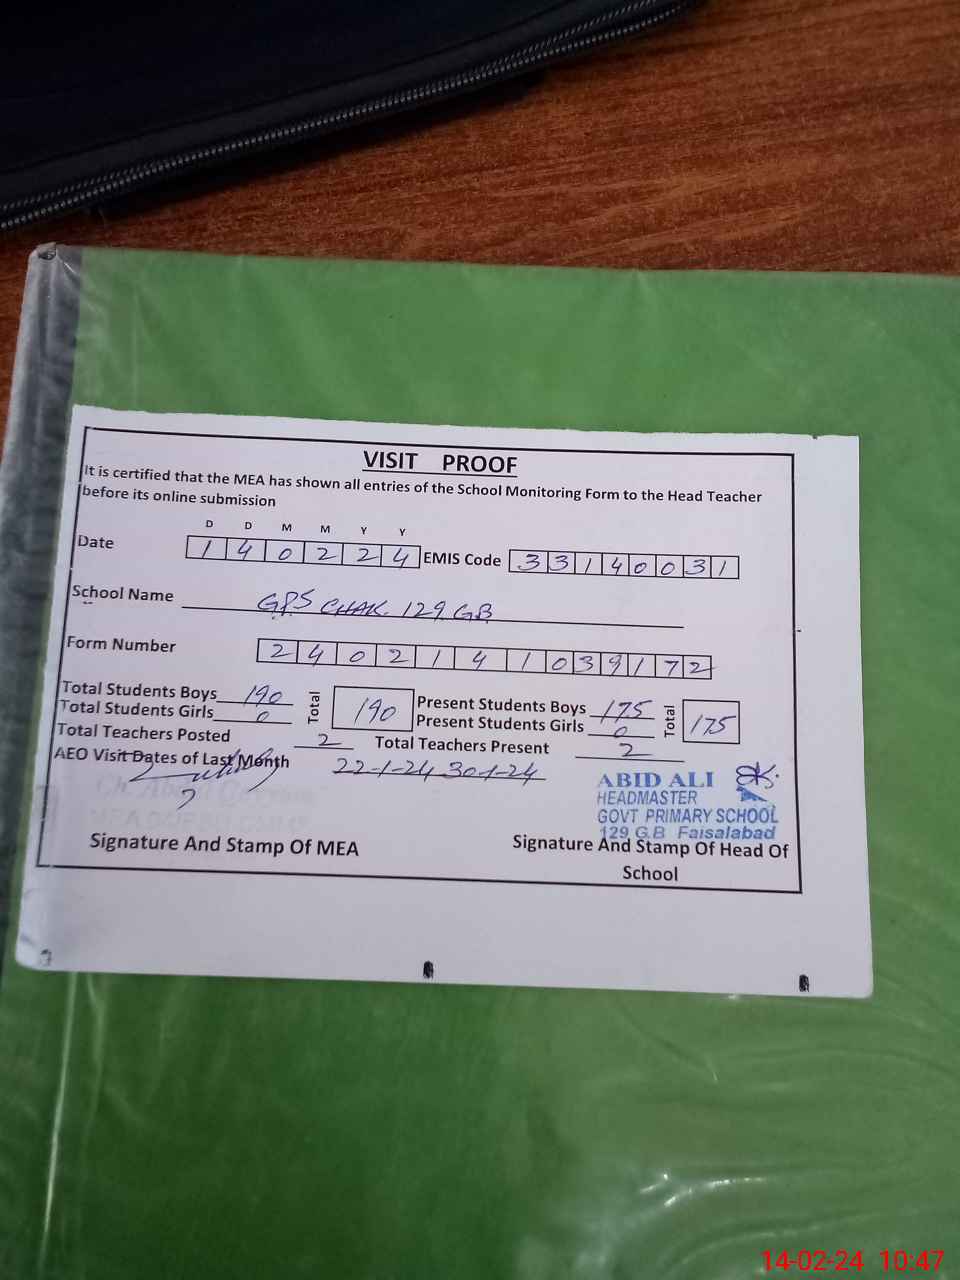 VISIT PROOF
It is certified that the MEA has shown all entries of the School Monitoring Form to the Head Teacher
before its online submission
D D M M Y Y
Date 1 4 0 2 2 4 EMIS Code 3 3 1 4 0 0 3 1
School Name GPS CHAK 129 GB
Form Number 2 4 0 2 1 4 1 0 3 9 1 7 2
Total Students Boys 190 Total 190 Present Students Boys 175 Total 175
Total Students Girls 0 Present Students Girls 0
Total Teachers Posted 2 Total Teachers Present 2
AEO Visit Dates of Last Month 22-1-24 30-1-24
ABID ALI
HEADMASTER
GOVT PRIMARY SCHOOL
129 G.B Faisalabad
Signature And Stamp Of MEA
Signature And Stamp Of Head Of
School
14-02-24 10:47